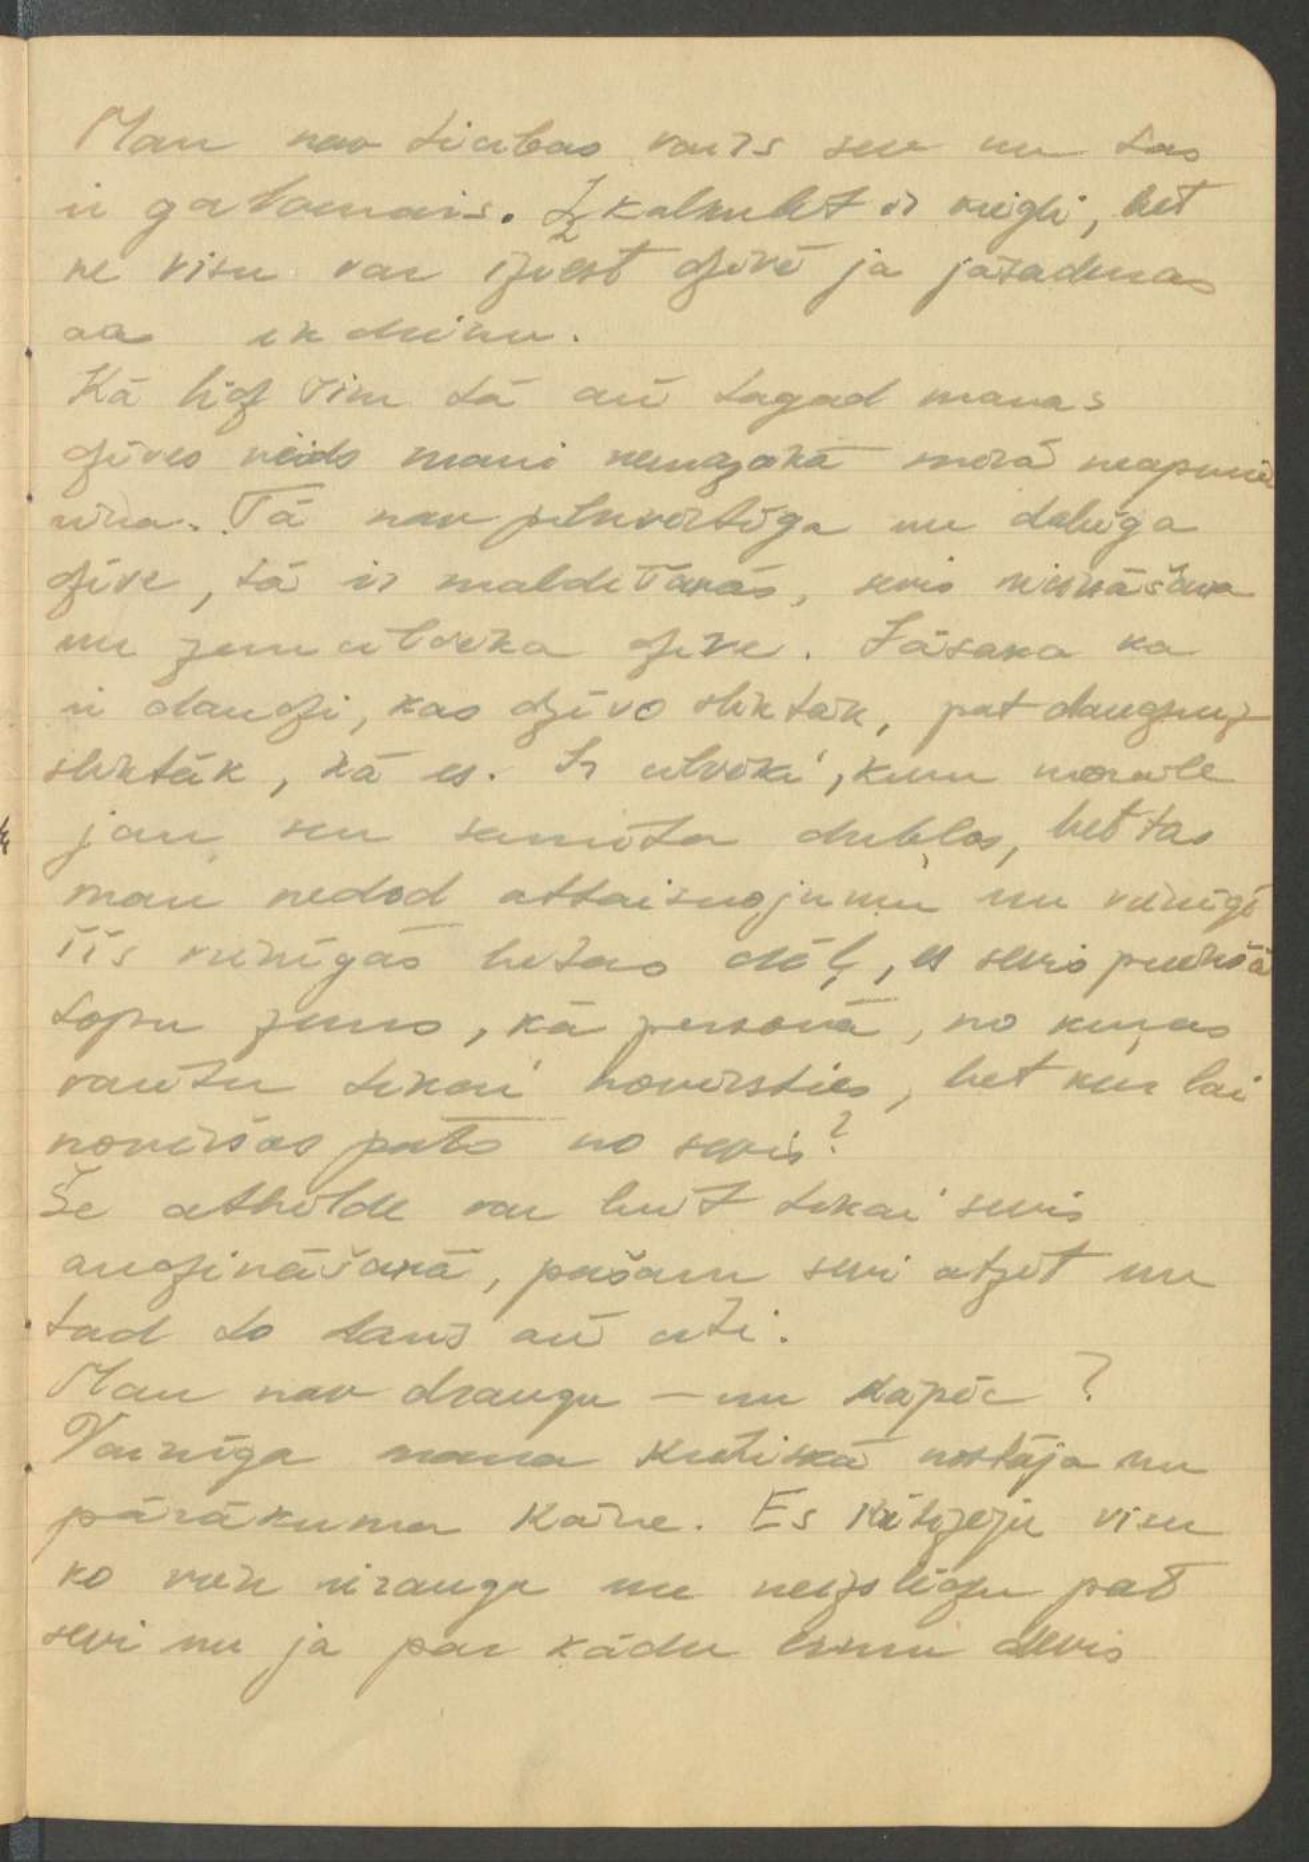 Man nav ticības vairs sev un tas
ir galvenais. Izkalkulēt ir viegli, bet
ne visu var izvest dzīvē ja jāsaduras
ar ik dienu.
Kā līdz šim tā arī tagad manas
dzīves veids mani nemazākā mērā neapmie
rina. Tā nav pilnvērtīga un derīga
dzīve, tā ir maldīšanās, sevis nicināšana
un zemcilvēka dzīve. Jāsaka ka
ir daudzi, kas dzīvo sliktāk, pat daudzreiz
sliktāk, kā es. Ir cilvēki, kuru morāle
jau sen samīta dubļos, bet tas
man nedod attaisnojumu un vienīgi
šīs vienīgās lietas dēļ, es sevis priekšā
topu zems, kā persona, no kuras
varētu tikai novērsties, bet kur lai
novēršas pats no sevis?
Še atbilde var būt tikai sevis
audzināšanā, pašam sevi atzīt un
tad to ļaus arī citi.
Man nav draugu – un kāpēc?
Vainīga mana kritiskā nostāja un
pārākuma kāre. Es kritizēju visu
ko vien ieraugu un neizslēdzu pat
sevi un ja par kādu esmu devis